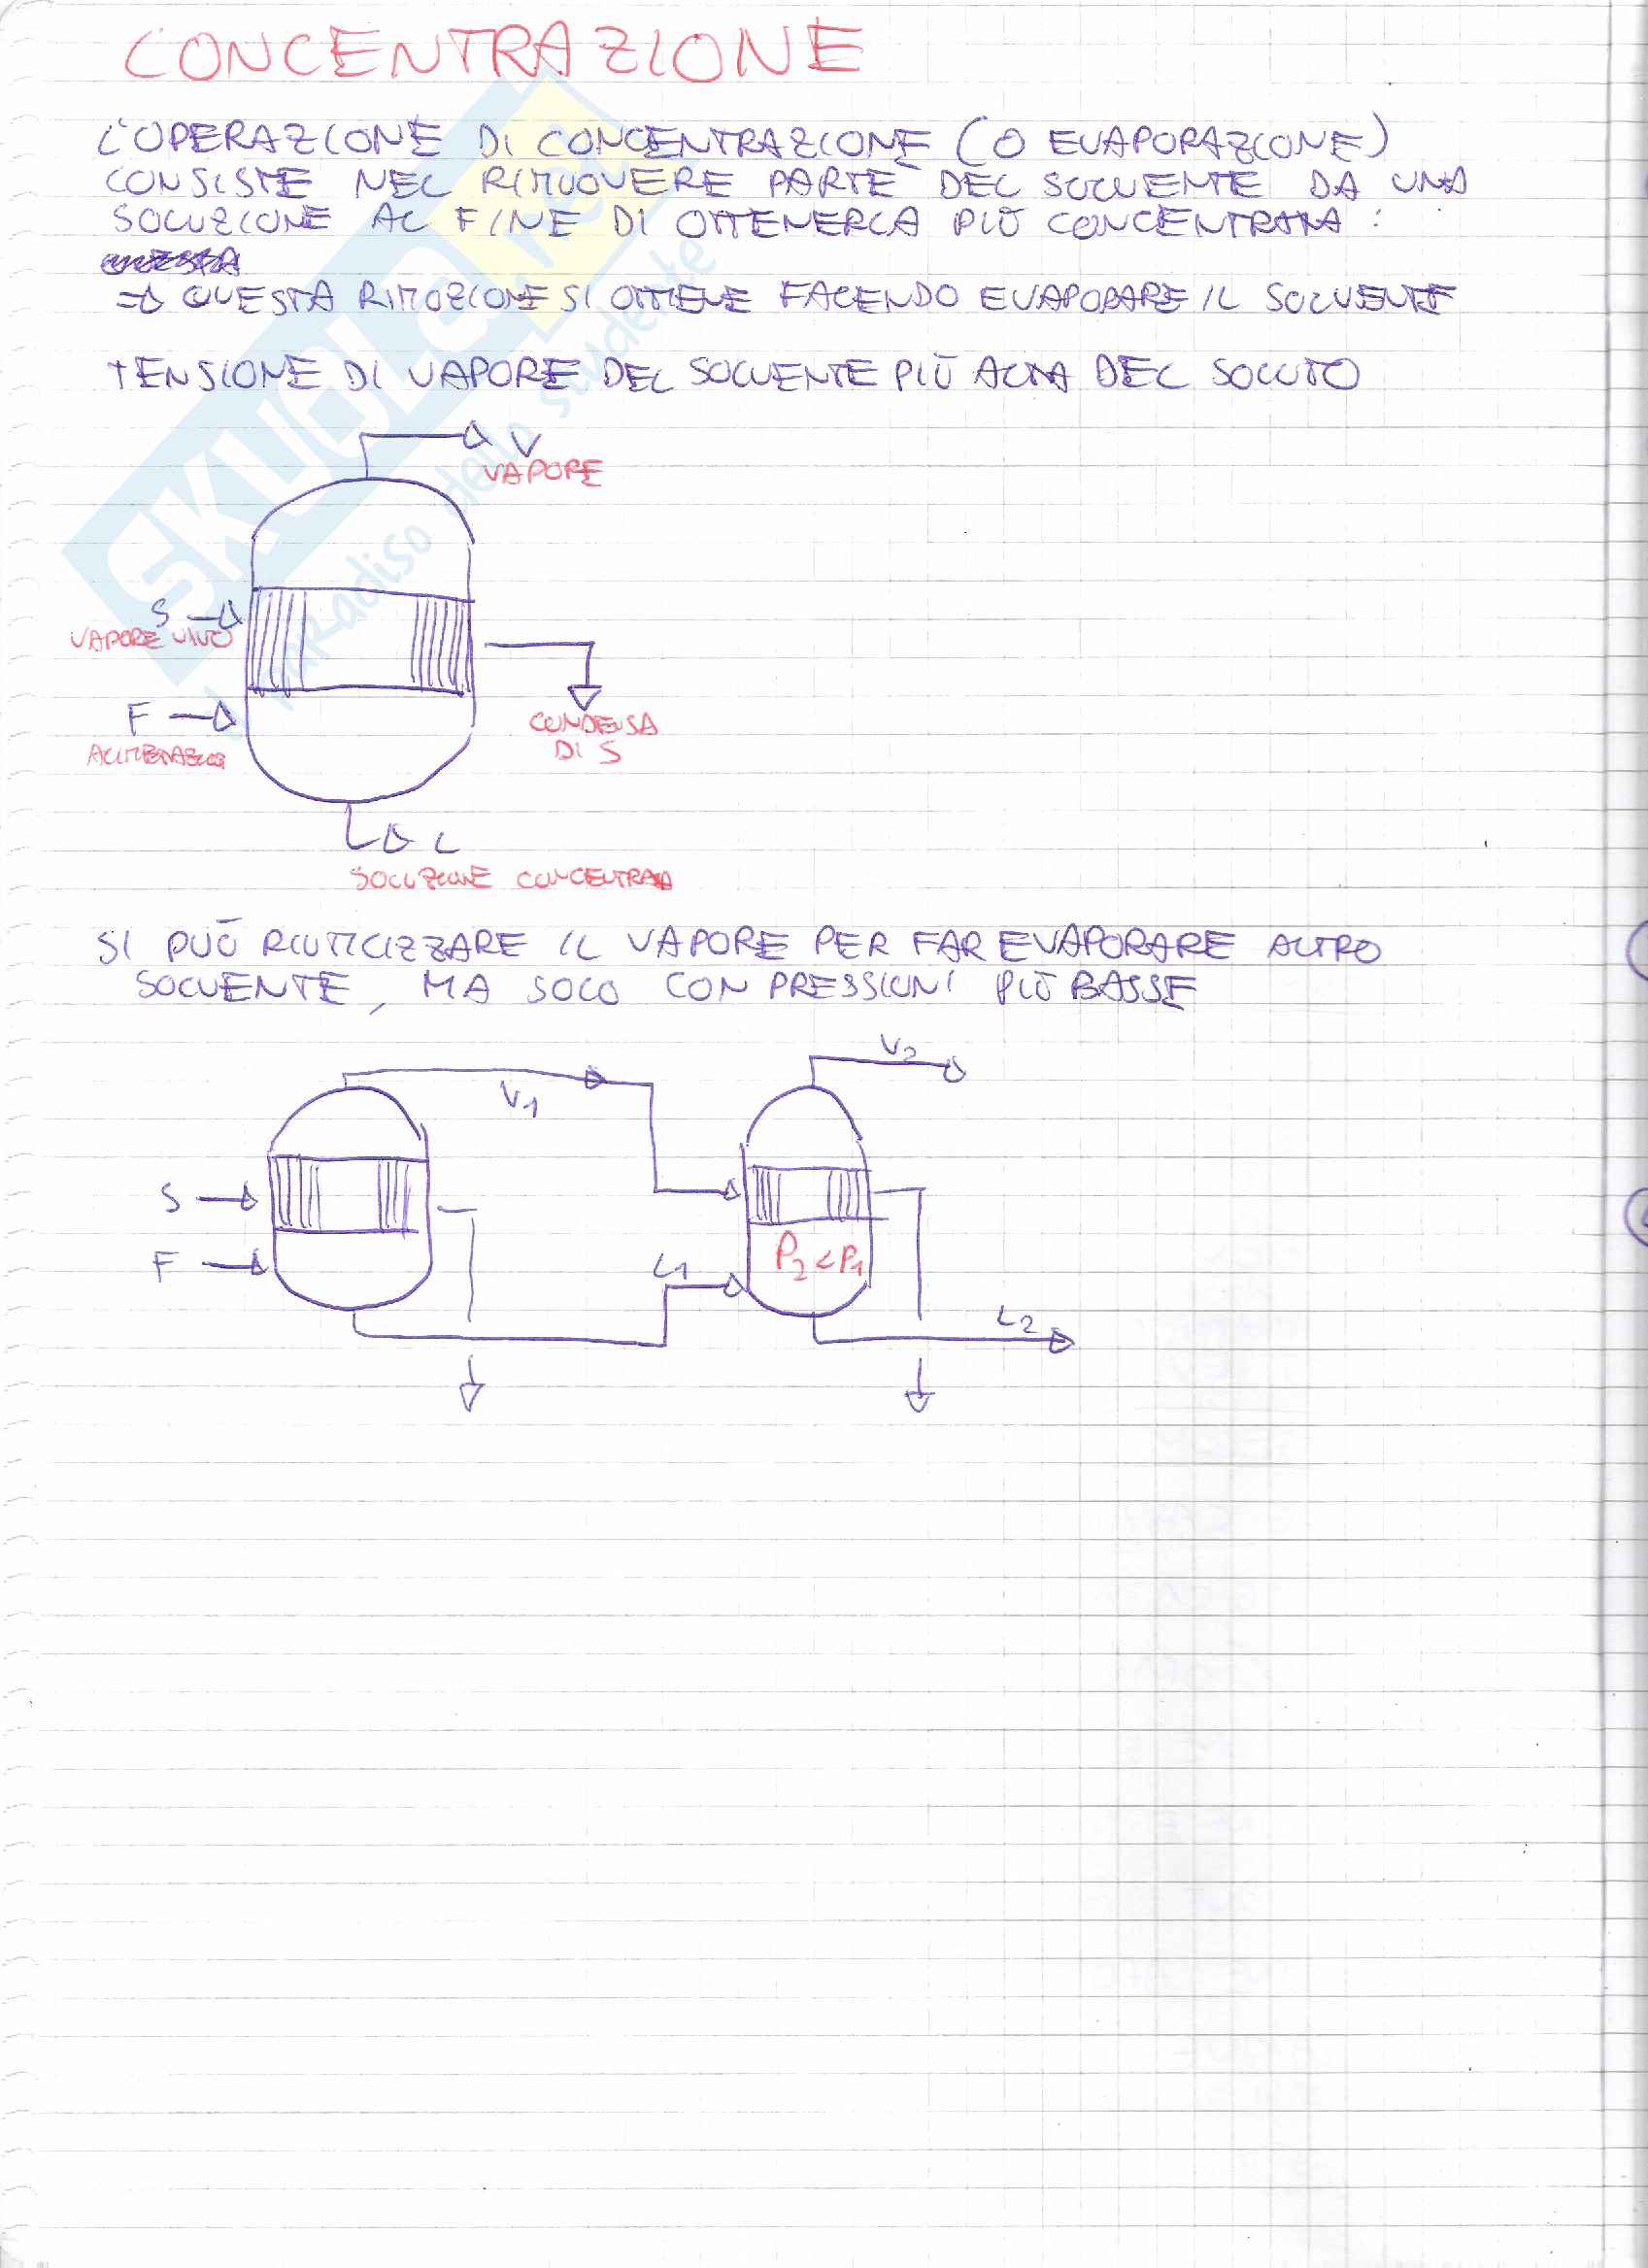 CONCENTRAZIONE
L'OPERAZIONE DI CONCENTRAZIONE (O EVAPORAZIONE)
CONSISTE NEL RIMUOVERE PARTE DEL SOLVENTE DA UNA
SOLUZIONE AL FINE DI OTTENERLA PIÙ CONCENTRATA:
⇒ QUESTA RIMOZIONE SI OTTIENE FACENDO EVAPORARE IL SOLVENTE
TENSIONE DI VAPORE DEL SOLVENTE PIÙ ALTA DEL SOLUTO
V
VAPORE
S
VAPORE VIVO
F
ALIMENTAZIONE
CONDENSA
DI S
L
SOLUZIONE CONCENTRATA
SI PUÒ RIUTILIZZARE IL VAPORE PER FAR EVAPORARE ALTRO
SOLVENTE, MA SOLO CON PRESSIONI PIÙ BASSE
V2
V1
S
F
L1
P2 < P1
L2
SKUOLA.net
il paradiso dello studente